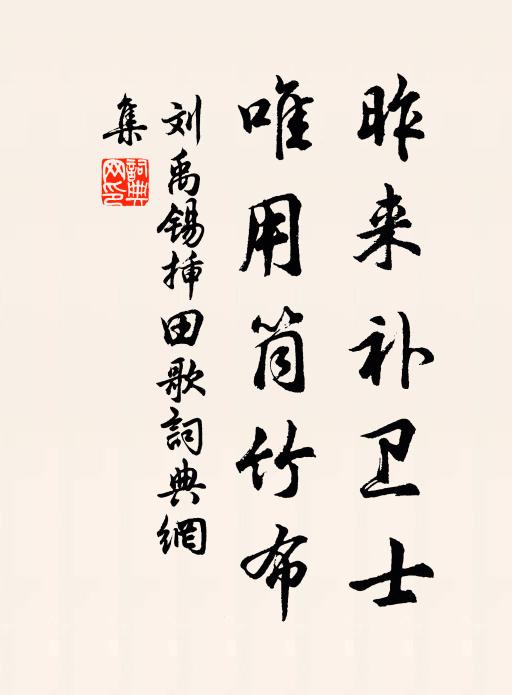 昨来补卫士
唯用筒竹布
刘禹锡插田歌詞典網
集
詞典网印